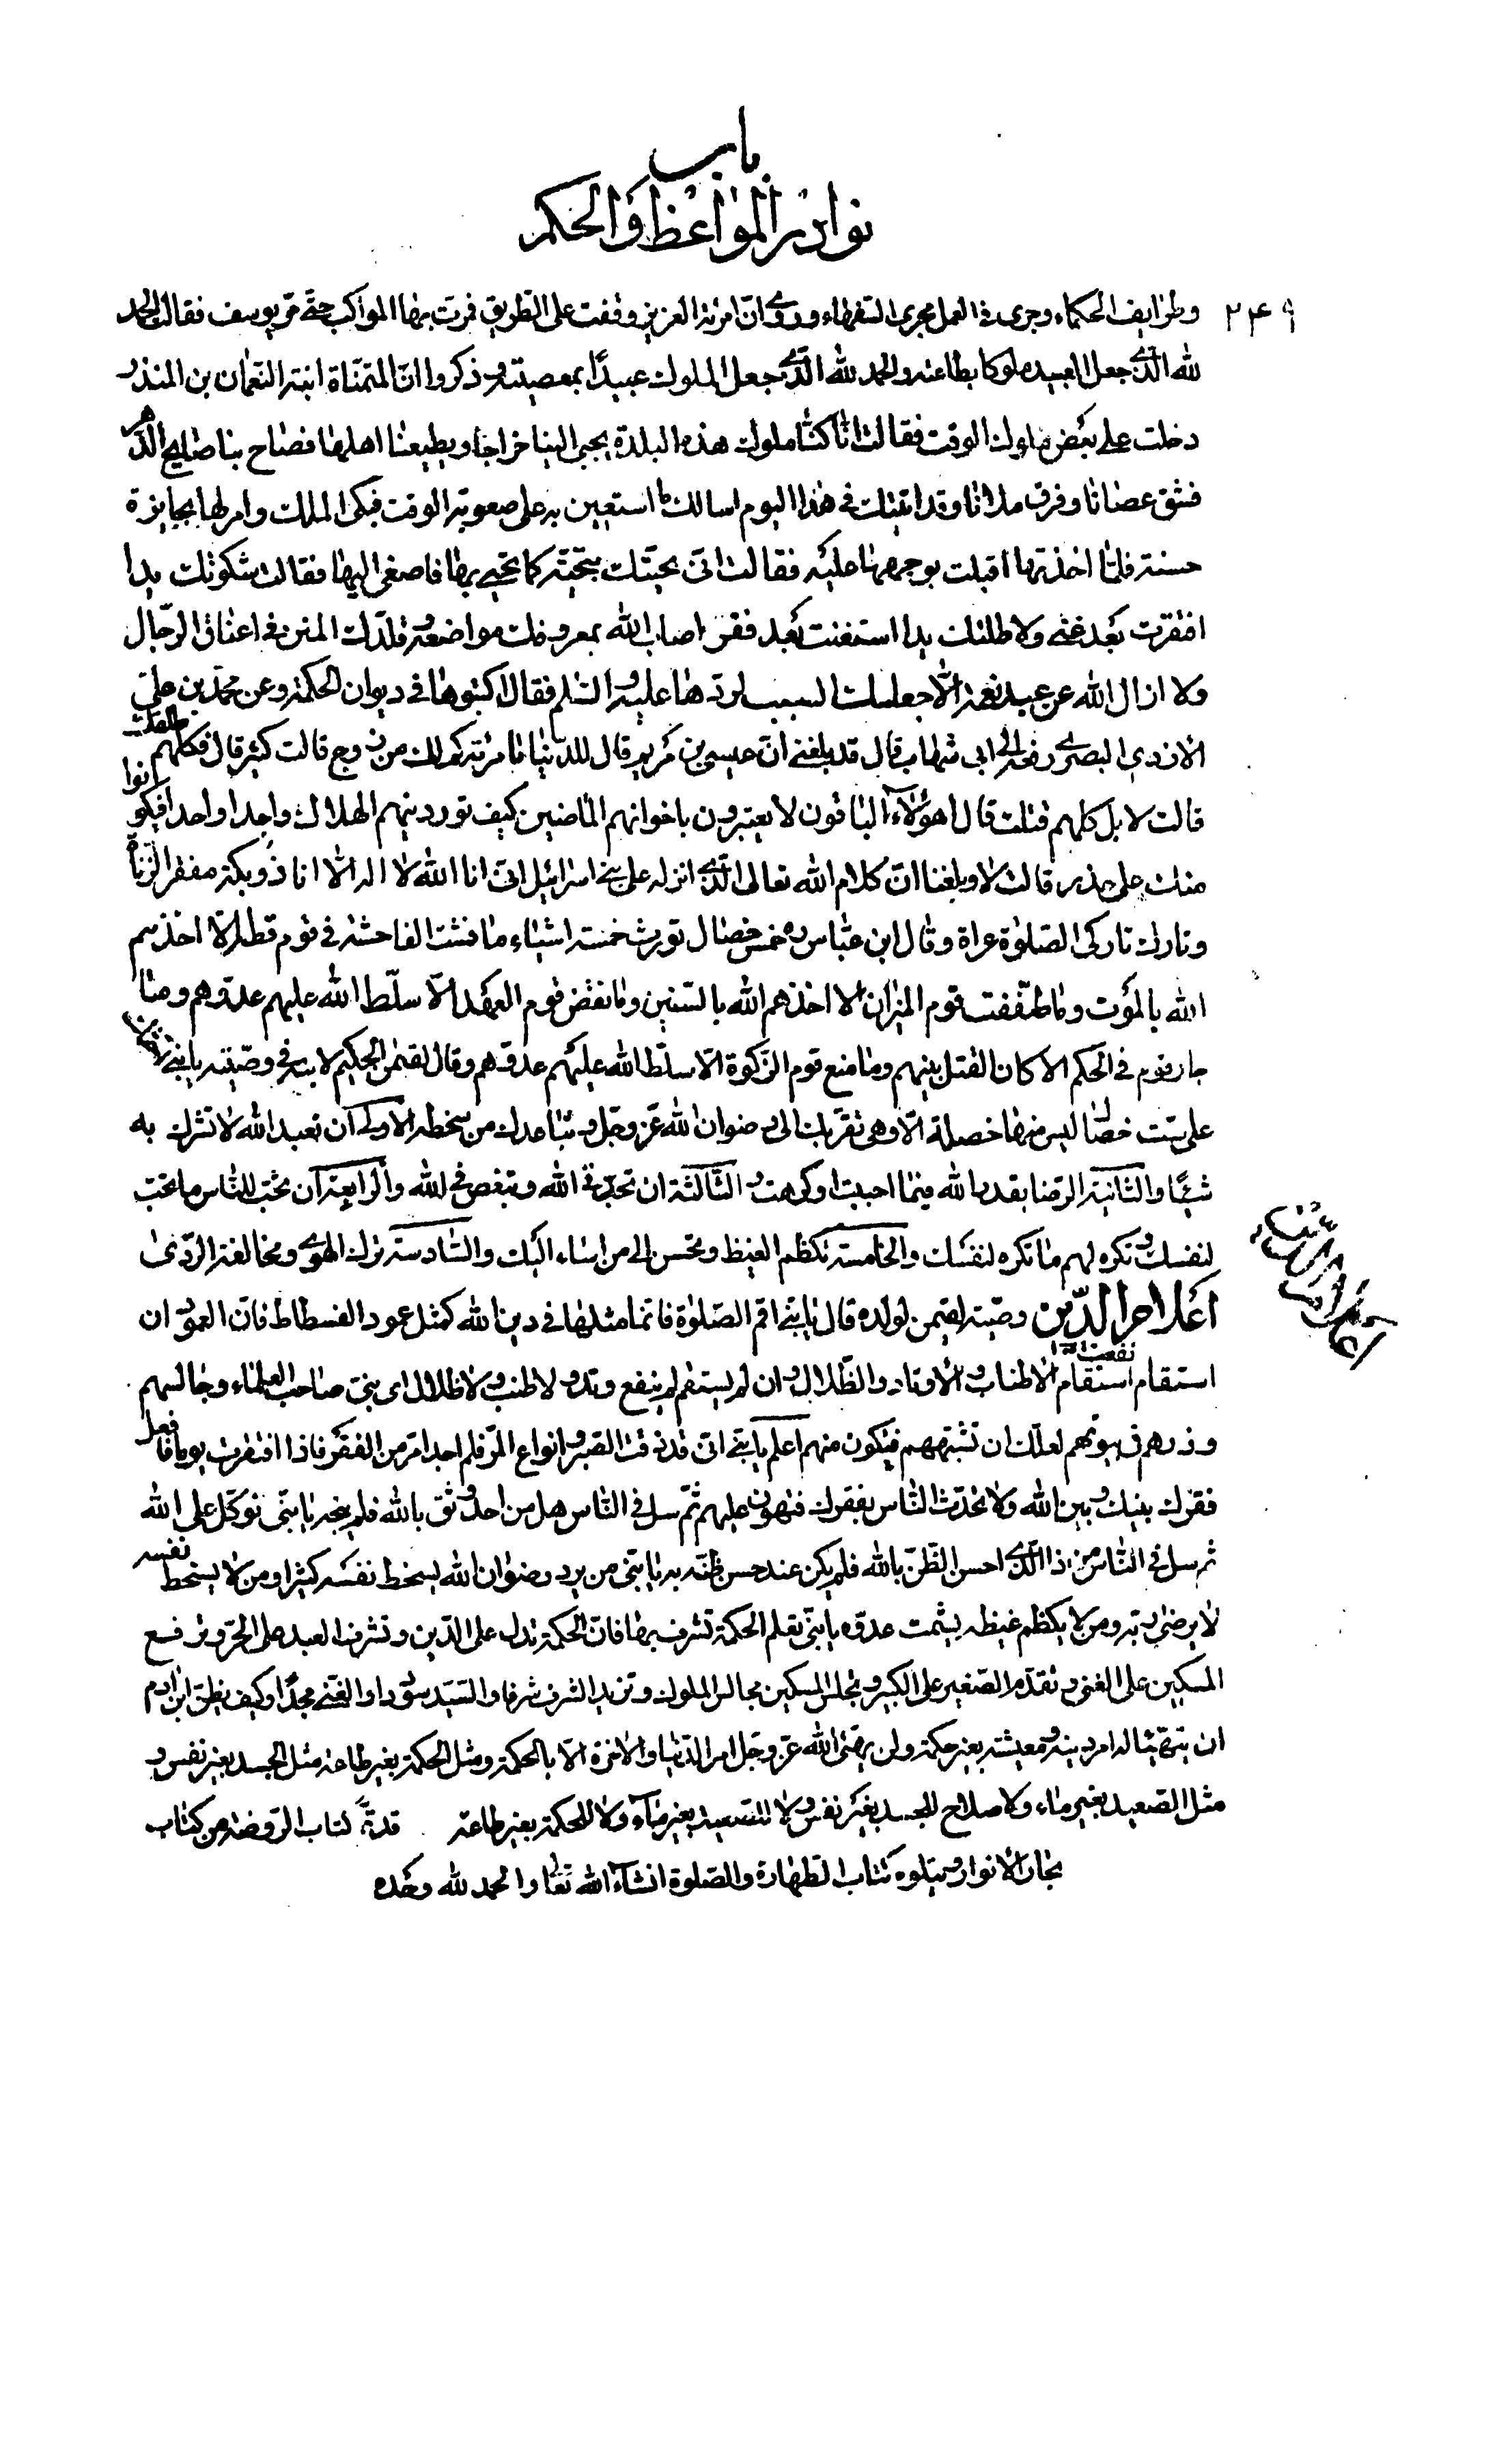 باب
نوادر المواعظ والحكم
٢٤٩
وطرايف الحكماء وجرى في العمل مجرى السفهاء وروي انّ امرئة العزيز وقفت على الطّريق فمرت بها المواكب حتّى مرّ يوسف فقالت الحمد
لله الّذي جعل العبيد ملوكا بطاعته والحمد لله الّذي جعل الملوك عبيدًا بمعصيته وذكروا انّ المتمنّاة ابنة النّعمان بن المنذر
دخلت على بعض ملوك الوقت فقالت انّا كنّا ملوك هذه البلدة يجبى الينا خراجها ويطيعنا اهلها فصاح بنا صايح الدّهر
فشق عصانا وفرق ملانا وقد اتيتك في هذا اليوم اسالك ما استعين به على صعوبة الوقت فبكى الملك وامر لها بجايزة
حسنة فلمّا اخذتها اقبلت بوجهها عليه فقالت انّى محيّيتك بتحيّة كنا نحيي بها فاصغى اليها فقالت شكرتك يدا
افتقرت بعد غنى ولا ملكتك يدا استغنت بعد فقر اصاب الله بمعروفك مواضعه وقلّدك المنن في اعناق الرّجال
ولا ازال الله عن عبد نعمة الّا جعلك السبب لردّها عليه والسّلم فقال اكتبوها في ديوان الحكمة وعن محمّد بن علىّ
الازدي البصري رفعه الى ابى شهاب قال قد بلغنى انّ عيسى بن مريم قال للدّنيا يا مرئة كم لك من زوج قالت كثير قال فكلّهم طلّقك
قالت لا بل كلهم قتلت قال اهؤلآء الباقون لا يعتبرون باخوانهم الماضين كيف توردينهم الهلاك واحدا واحدا فيكونوا
منك على حذر قالت لا وبلغنا انّ كلام الله تعالى الّذي انزله على بنى اسرائيل انى انا الله لا اله الّا انا ذو بكة مفقر الزناة
وتارك تاركى الصّلوة عراة وقال ابن عبّاس ره خمس خصال تورث خمسة اشياء ما فشت الفاحشة في قوم قط الّا اخذهم
الله بالموت وما طفّفت قوم الميزان الا اخذهم الله بالسّنين وما نقض قوم العهد الّا سلّط الله عليهم عدوّهم وما
جار قوم في الحكم الا كان القتل بينهم وما منع قوم الزّكوة الّا سلّط الله عليهم عدوّهم وقال لقمن الحكيم لابنه في وصيّته يا بنى
على ستّ خصال ليس منها خصلة الّا وهى تقرّبك الى رضوان الله عزّ وجلّ وتباعدك من سخطه الاولى ان تعبد الله لا تشرك به
شيئًا والثّانية الرّضا بقدر الله فيما احببت او كرهت والثّالثة ان تحبّ في الله وتبغض في الله والرّابعة ان تحبّ للنّاس ما تحبّ
لنفسك وتكره لهم ما تكره لنفسك والخامسة تكظم الغيظ وتحسن الى من اساء اليك والسّادسة ترك الهوى ومخالفة الرّدى
اعلام الدّين
اعلام الدّين وصيّة لقمن لولده قال يا بنىّ اقم الصّلوة فانّما مثلها في دين الله كمثل عمود الفسطاط فانّ العمود ان
استقام استقام نفعت الاطناب والاوتاد والظّلال وان لم يستقم لم ينفع وتد ولا طنب ولا ظلال اى بنىّ صاحب العلماء وجالسهم
وزرهم في بيوتهم لعلّك ان تشبّههم فتكون منهم اعلم يا بنىّ انّى قد ذقت الصّبر وانواع المرّ فلم اجد امرّ من الفقر فاذا افتقرت يوما فاجعل
فقرك بينك وبين الله ولا تحدّث النّاس بفقرك فتهون عليهم ثمّ سل في النّاس هل من احد وثق بالله فلم ينجه يا بنىّ توكّل على الله
ثم سل في النّاس من ذا الّذي احسن الظّنّ بالله فلم يكن عند حسن ظنّه به يا بنىّ من يرد رضوان الله يسخط نفسه كثيرا ومن لا يسخط نفسه
لا يرضى ربّه ومن لا يكظم غيظه يشمت عدوّه يا بنىّ تعلم الحكمة تشرف بها فانّ الحكمة تدل على الدّين وتشرف العبد على الحرّ وترفع
المسكين على الغنى وتقدّم الصّغير على الكبير وتجلس المسكين مجالس الملوك وتزيد الشرف شرفا والسّيّد سؤددا والغنى مجدًا وكيف يظنّ ابن ادم
ان يتهيّأ له امر دينه ومعيشته بغير حكمة ولن يهيّئ الله عزّ وجلّ امر الدّنيا والاخرة الّا بالحكمة ومثل الحكمة بغير طاعة مثل الجسد بغير نفس و
مثل الصّعيد بغير ماء ولا صلاح للجسد بغير نفس ولا للصّعيد بغير ماء ولا للحكمة بغير طاعة قد تمّ كتاب الرّوضة من كتاب
بحار الانوار ويتلوه كتاب الطّهارة والصّلوة انشاء الله تعالى والحمد لله وحده